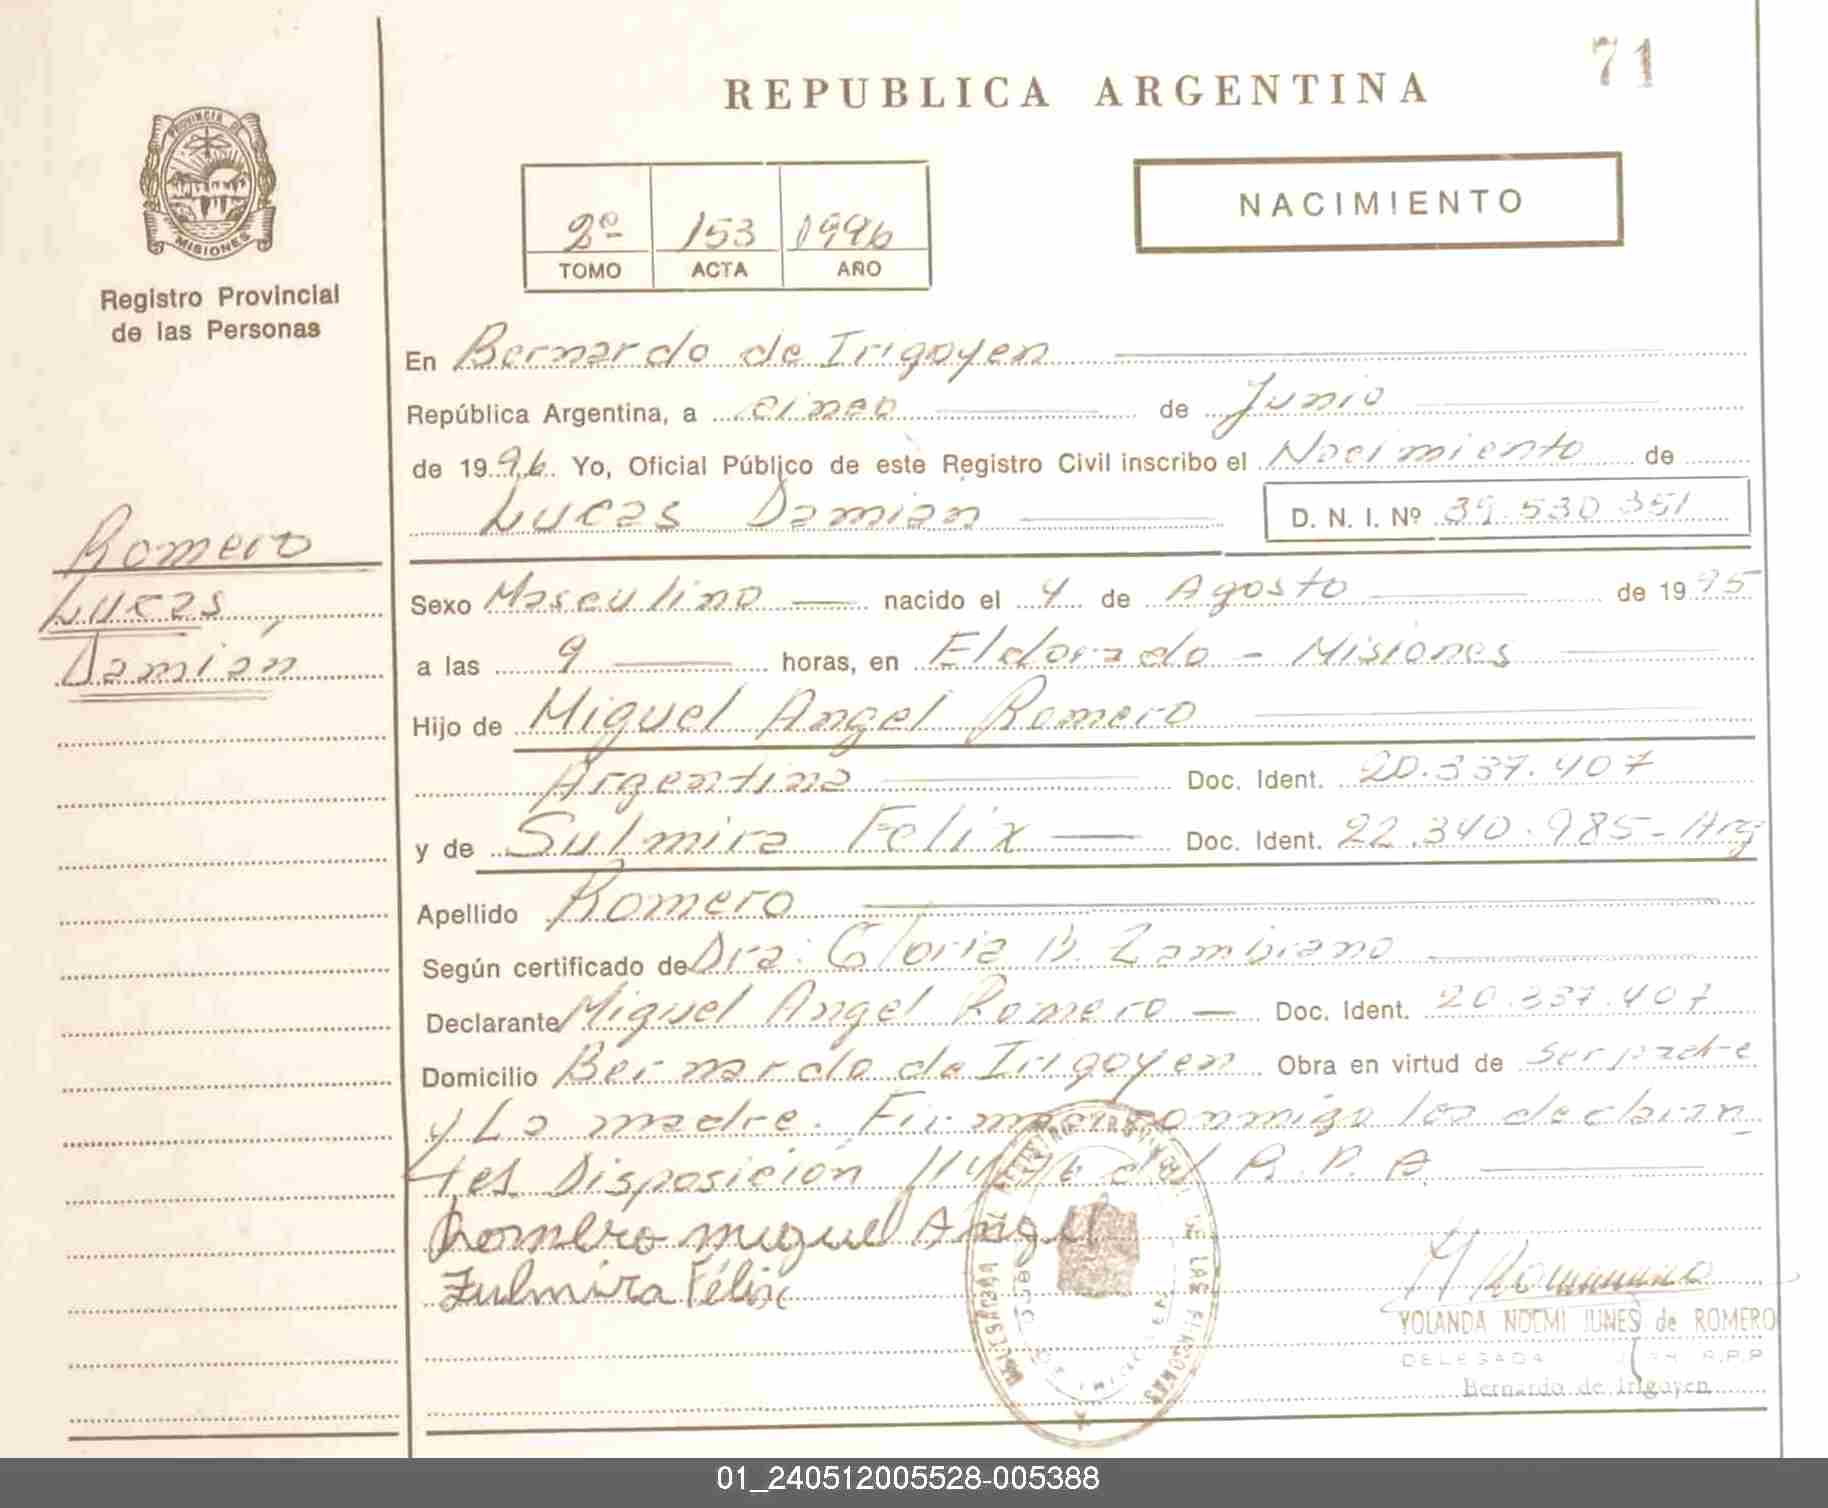 71
REPUBLICA ARGENTINA
PROVINCIA DE
MISIONES
Registro Provincial
de las Personas
NACIMIENTO
2º 153 1996
TOMO ACTA AÑO
En Bernardo de Irigoyen
República Argentina, a cinco de Junio
de 1996 Yo, Oficial Público de este Registro Civil inscribo el Nacimiento de
Lucas Damian D. N. I. Nº 39.530.351
Romero
Lucas
Damián
Sexo Masculino nacido el 4 de Agosto de 1995
a las 9 horas, en Eldorado - Misiones
Hijo de Miguel Angel Romero
Argentina Doc. Ident. 20.337.407
y de Sulmira Felix Doc. Ident. 22.340.985 - Arg
Apellido Romero
Según certificado de Dra: Gloria B. Zambiano
Declarante Miguel Angel Romero Doc. Ident. 20.337.407
Domicilio Bernardo de Irigoyen Obra en virtud de ser padre
y La madre. Firman conmigo los declaran
tes Disposición del R. P. P.
Romero miguel Angel
Zulmira Félix
YOLANDA NOEMI JUNES de ROMERO
DELEGADA R.P.P
Bernardo de Irigoyen
01_240512005528-005388